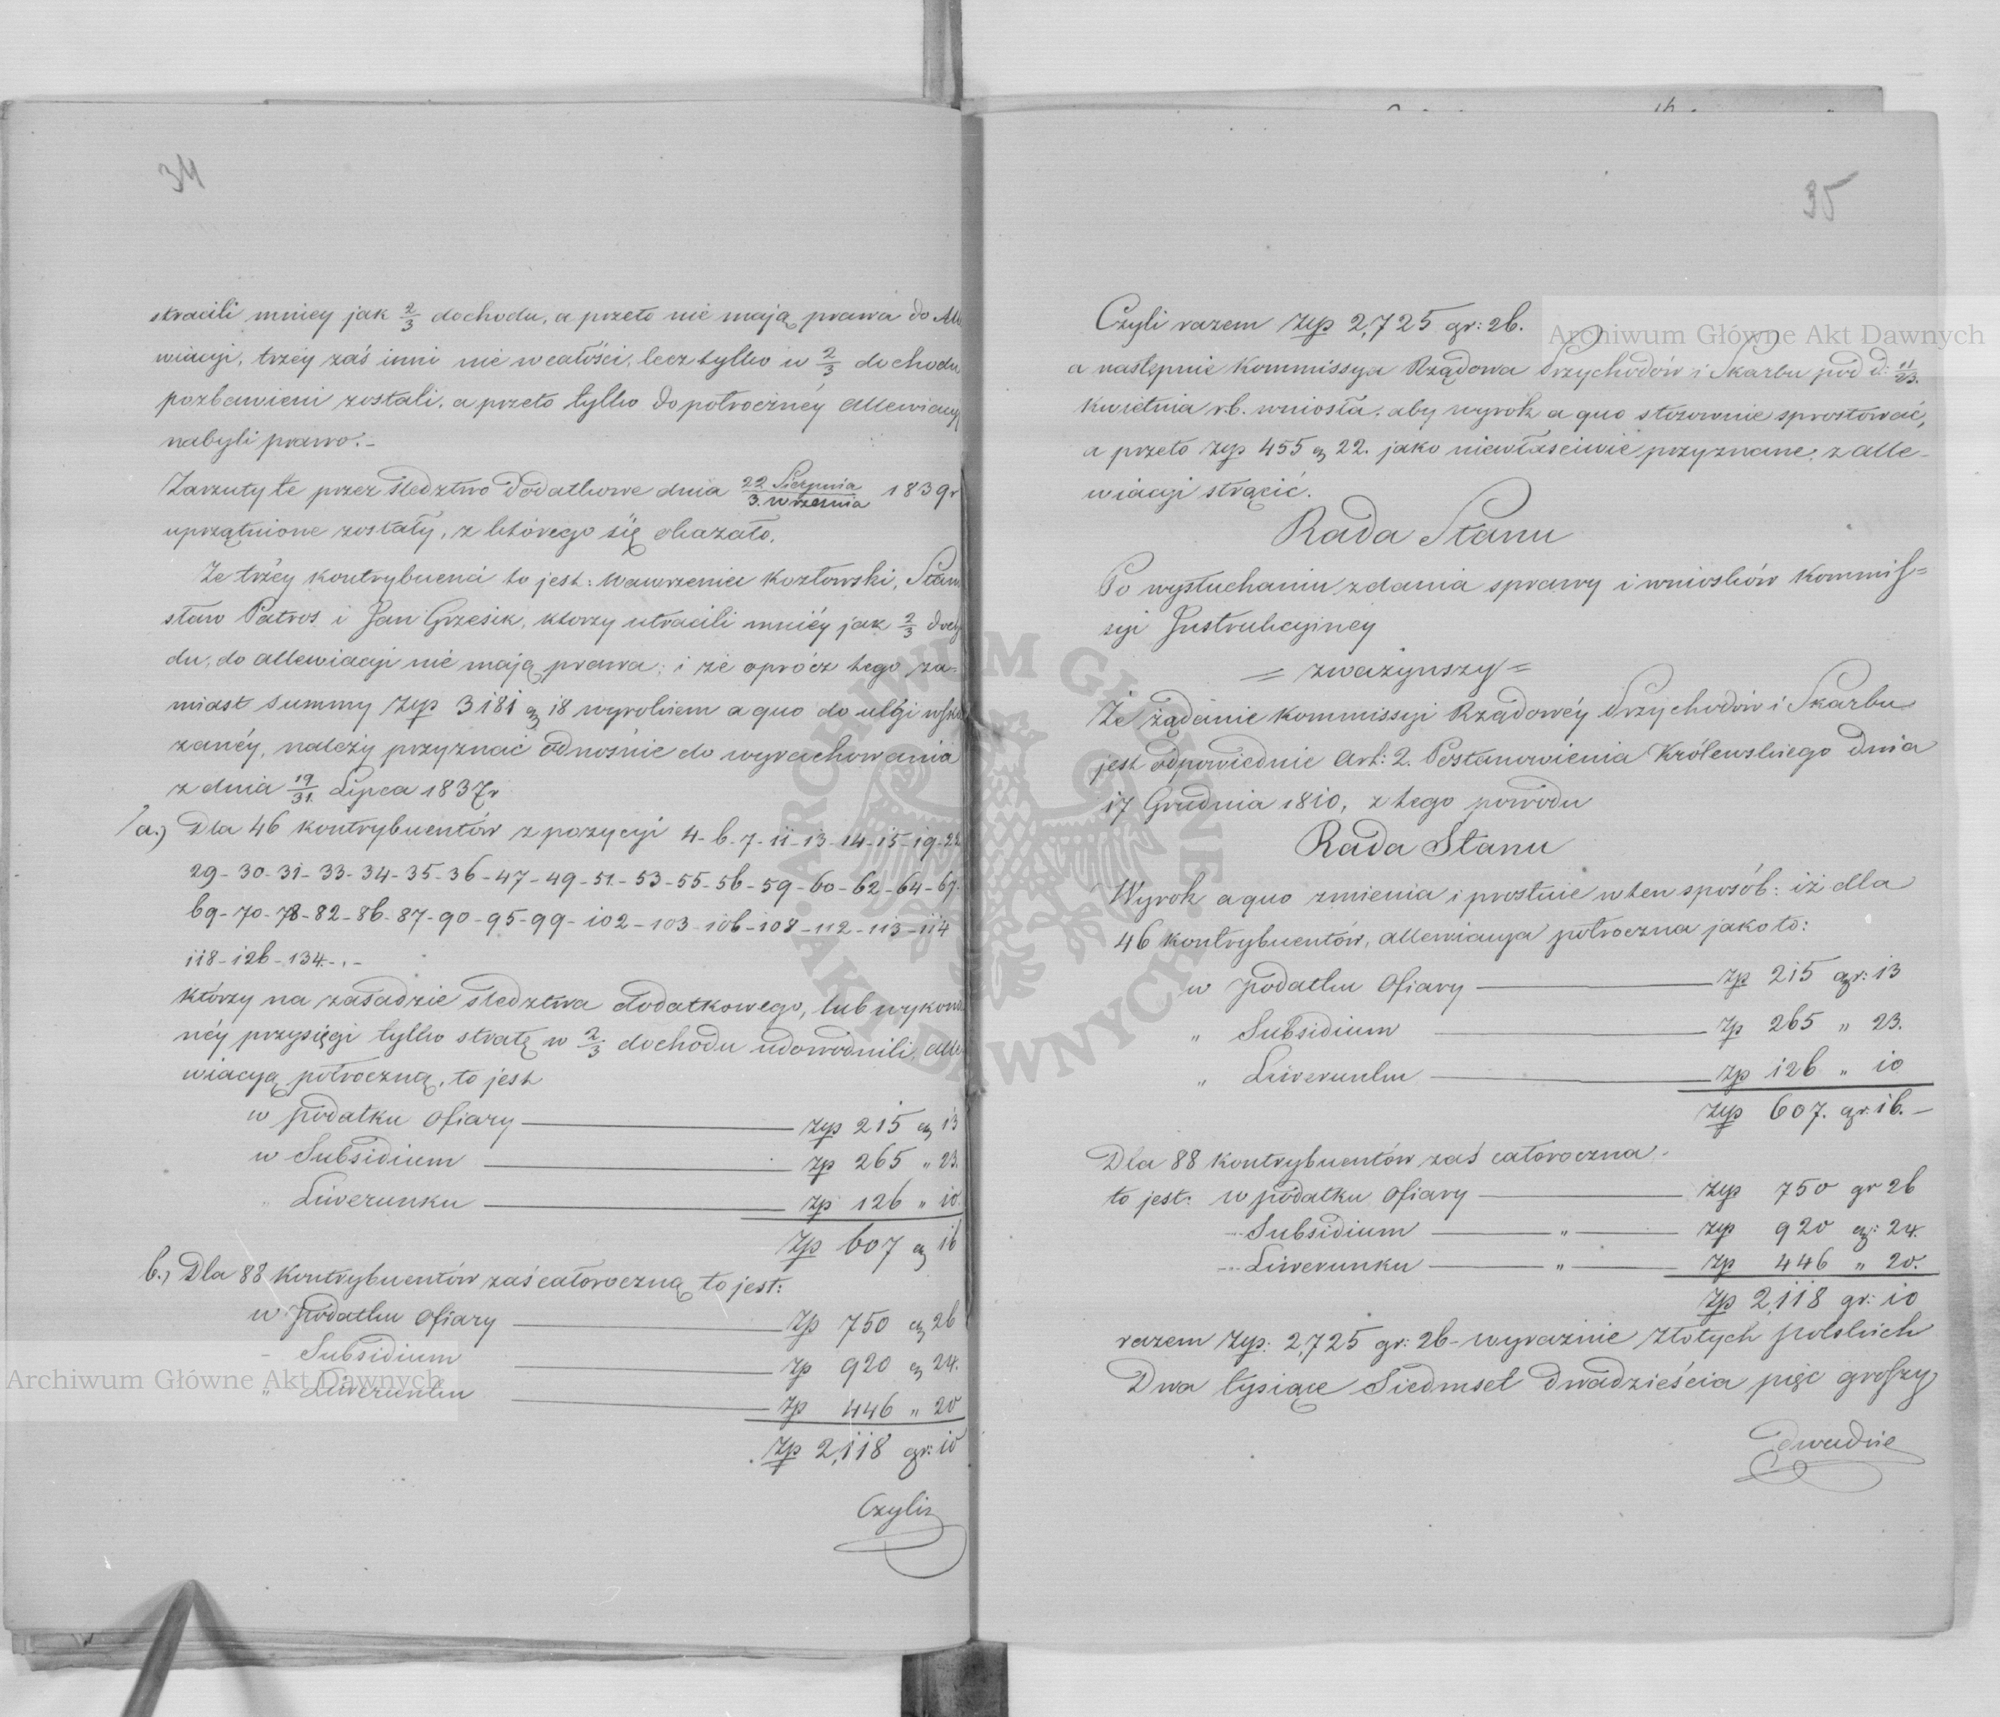 34
stracili mniey jak 2/3 dochodu, a przeto nie mają prawa do Alle
wiacyi, trzéy zaś inni nie wcałości, lecz tylko w 2/3 dochodu
pozbawieni zostali, a przeto tylko do półrocznéy allewiacyi
nabyli prawo.-
Zarzuty te przez śledztwo dodatkowe dnia 22 Sierpnia/3. września 1839r
uprzątnione zostały, z którego się okazało.
Że trzéy kontrybuenci to jest: Wawrzeniec Kozłowski, Stani
sław Patros i Jan Grzesik, którzy utracili mniéy jak 2/3 docho
du, do allewiacyi nie mają prawa; i że oprócz tego za-
miast summy złp 3181 gr 18 wyrokiem a quo do ulgi wska
zanéy, należy przyznać odnośnie do wyrachowania
z dnia 19/31 Lipca 1837r
a.) Dla 46 kontrybuentów z pozycyi 4-6-7-11-13-14-15-19-22
29-30-31-33-34-35-36-47-49-51-53-55-56-59-60-62-64-67.
69-70-78-82-86-87-90-95-99-102-103-106-108-112-113-114
118-126-134-.-
którzy na zasadzie śledztwa dodatkowego, lub wykona
néy przysięgi tylko stratę w 2/3 dochodu udowodnili, alle
wiacyą półroczną, to jest
w podatku ofiary złp 215 gr 13
w Subsidium złp 265 " 23.
" Liwerunku złp 126 " 10.
złp 607 gr 16
b.) Dla 88 kontrybuentów zaś całoroczną to jest:
w podatku ofiary złp 750 gr 26
- Subsidium złp 920 gr 24.
" Liwerunku złp 446 " 20
złp 2,118 gr: 10
Czyli
35
Czyli razem złp 2,725 gr: 26.
a następnie Kommissya Rządowa Przychodów i Skarbu pod d: 11/23.
Kwietnia r.b. wniosła: aby wyrok a quo stosownie sprostować,
a przeto złp 455 gr 22. jako niewłaściwie przyznane, z alle-
wiacyi strącić.
Rada Stanu
Po wysłuchaniu zdania sprawy i wniosków Kommis=
syi Instrukcyiney
= zważywszy =
Że żądanie Kommissyi Rządowéy Przychodów i Skarbu
jest odpowiednie Art: 2. Postanowienia Królewskiego dnia
17 Grudnia 1810, z tego powodu
Rada Stanu
Wyrok a quo zmienia i prostuie w ten sposób: iż dla
46 kontrybuentów, allewiacya półroczna jako to:
w podatku ofiary złp 215 gr: 13
" Subsidium złp 265 " 23.
" Liwerunku złp 126 " 10
złp 607. gr. 16.-
Dla 88 kontrybuentów zaś całoroczna
to jest: w podatku ofiary złp 750 gr 26
- Subsidium " złp 920 gr: 24.
- Liwerunku " złp 446 " 20.
złp 2,118 gr: 10
razem złp: 2,725 gr: 26 - wyraźnie złotych polskich
Dwa tysiące Siedmset dwadzieścia pięć groszy
dwadzie
Archiwum Główne Akt Dawnych
Archiwum Główne Akt Dawnych
ARCHIWUM GŁÓWNE AKT DAWNYCH